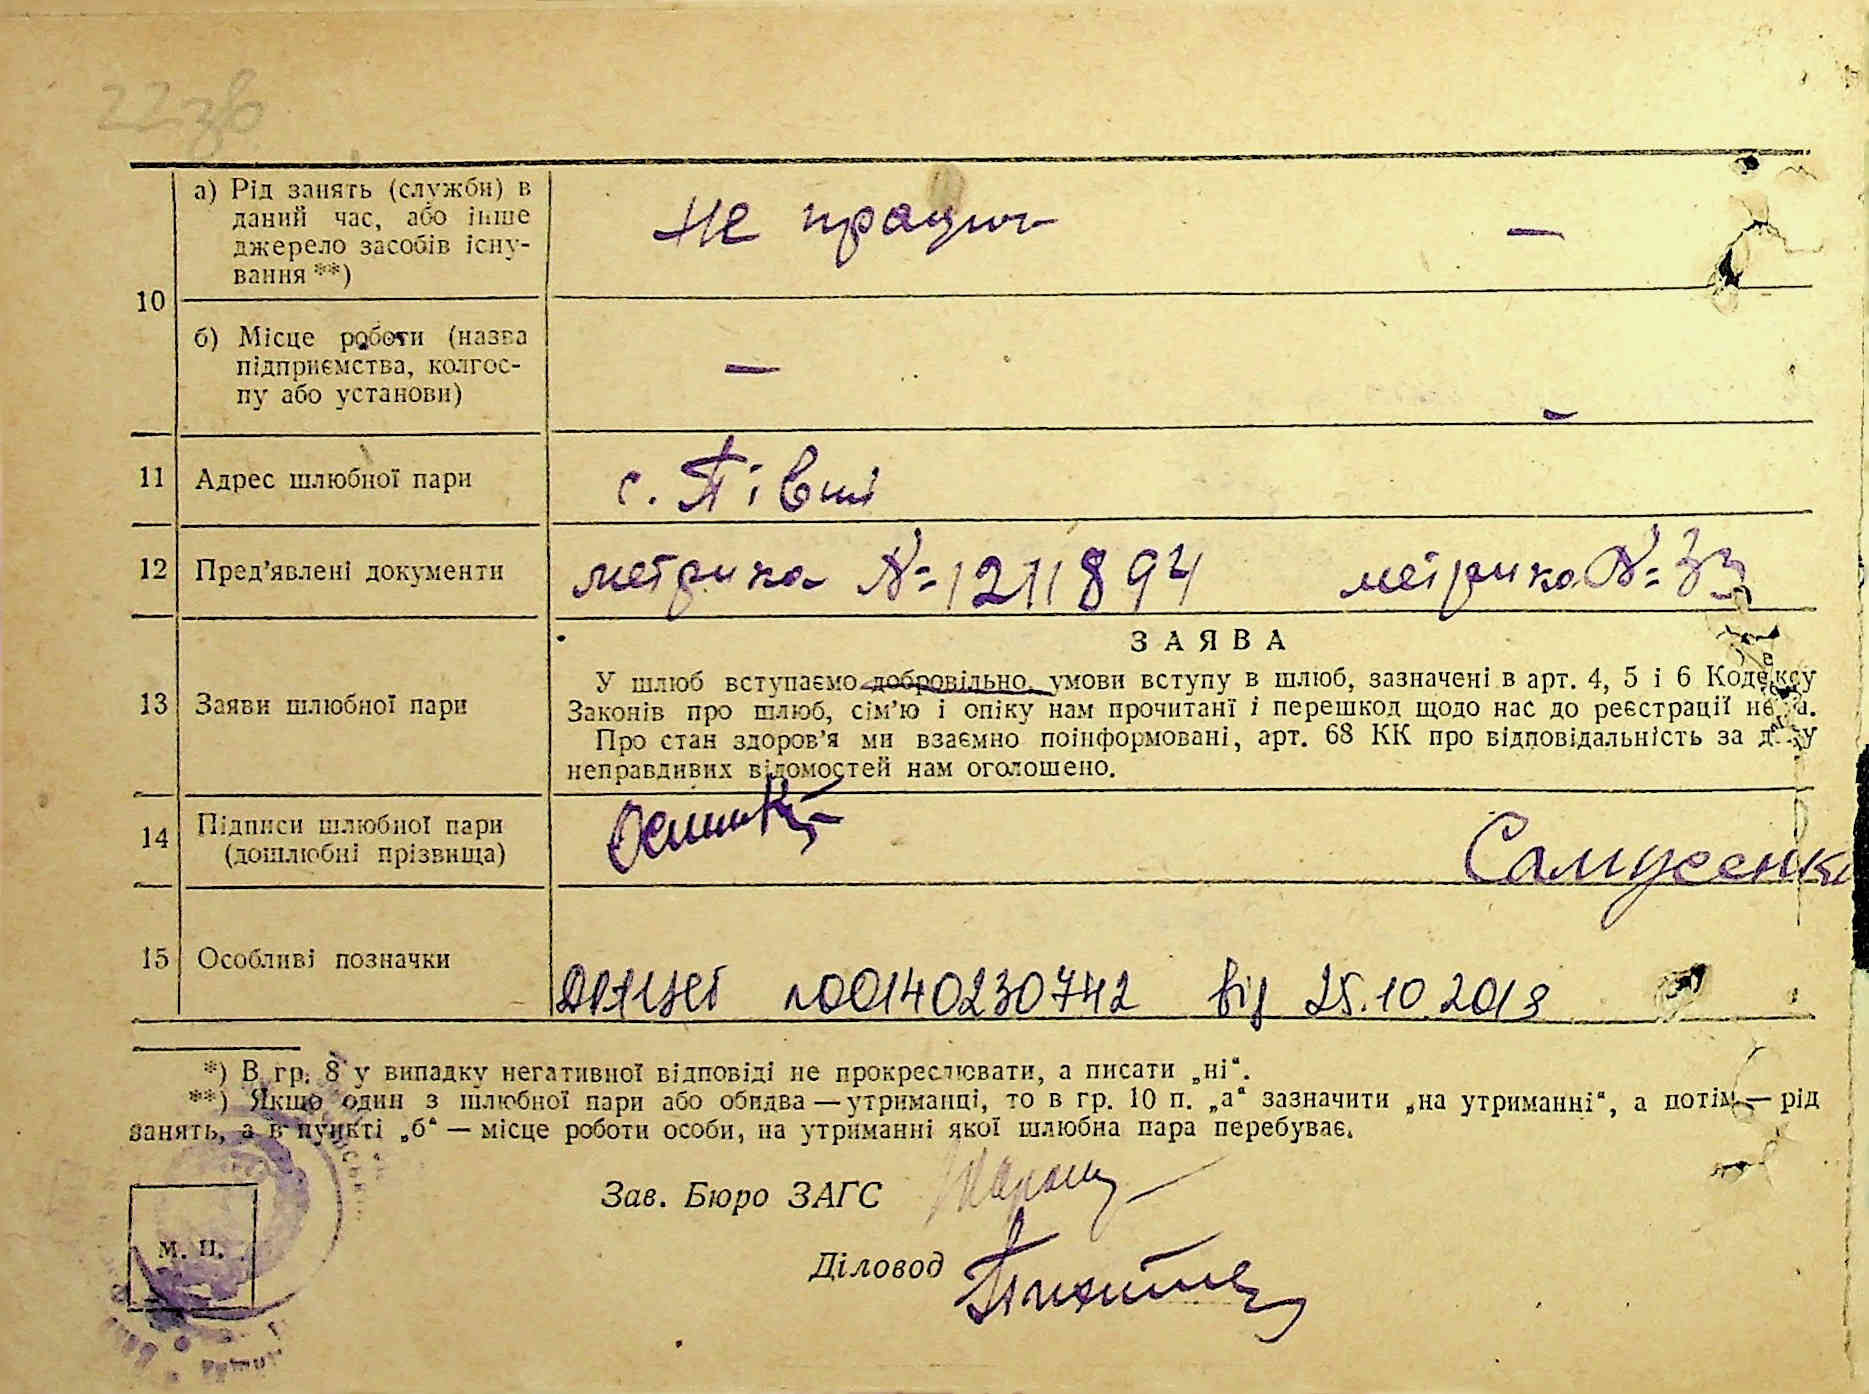 22зв
10
а) Рід занять (служби) в
даний час, або інше
джерело засобів існу-
вання **)
не працює
—
—
б) Місце роботи (назва
підприємства, колгос-
пу або установи)
—
—
11 Адрес шлюбної пари
с. Півні
12 Пред'явлені документи
метрика №1211894 метрика № 33
13 Заяви шлюбної пари
ЗАЯВА
У шлюб вступаємо добровільно, умови вступу в шлюб, зазначені в арт. 4, 5 і 6 Кодексу
Законів про шлюб, сім'ю і опіку нам прочитанї і перешкод щодо нас до реєстрації нема.
Про стан здоров'я ми взаємно поінформовані, арт. 68 КК про відповідальність за дачу
неправдивих відомостей нам оголошено.
14 Підписи шлюбної пари
(дошлюбні прізвища)
Самусенко
15 Особливі позначки
ДРАЦСГ 00140230742 від 25.10.2019
*) В гр. 8 у випадку негативної відповіді не прокреслювати, а писати „ні“.
**) Якщо один з шлюбної пари або обидва — утриманці, то в гр. 10 п. „а“ зазначити „на утриманні“, а потім — рід
занять, а в пункті „б“ — місце роботи особи, на утриманні якої шлюбна пара перебуває.
Зав. Бюро ЗАГС
Діловод
М. П.